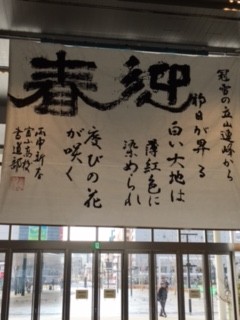 迎春
冠雪の立山連峰から
朝日が昇る
白い大地は
薄紅色に
染められ
慶びの花
が咲く
丙申新春
富山高校
書道部